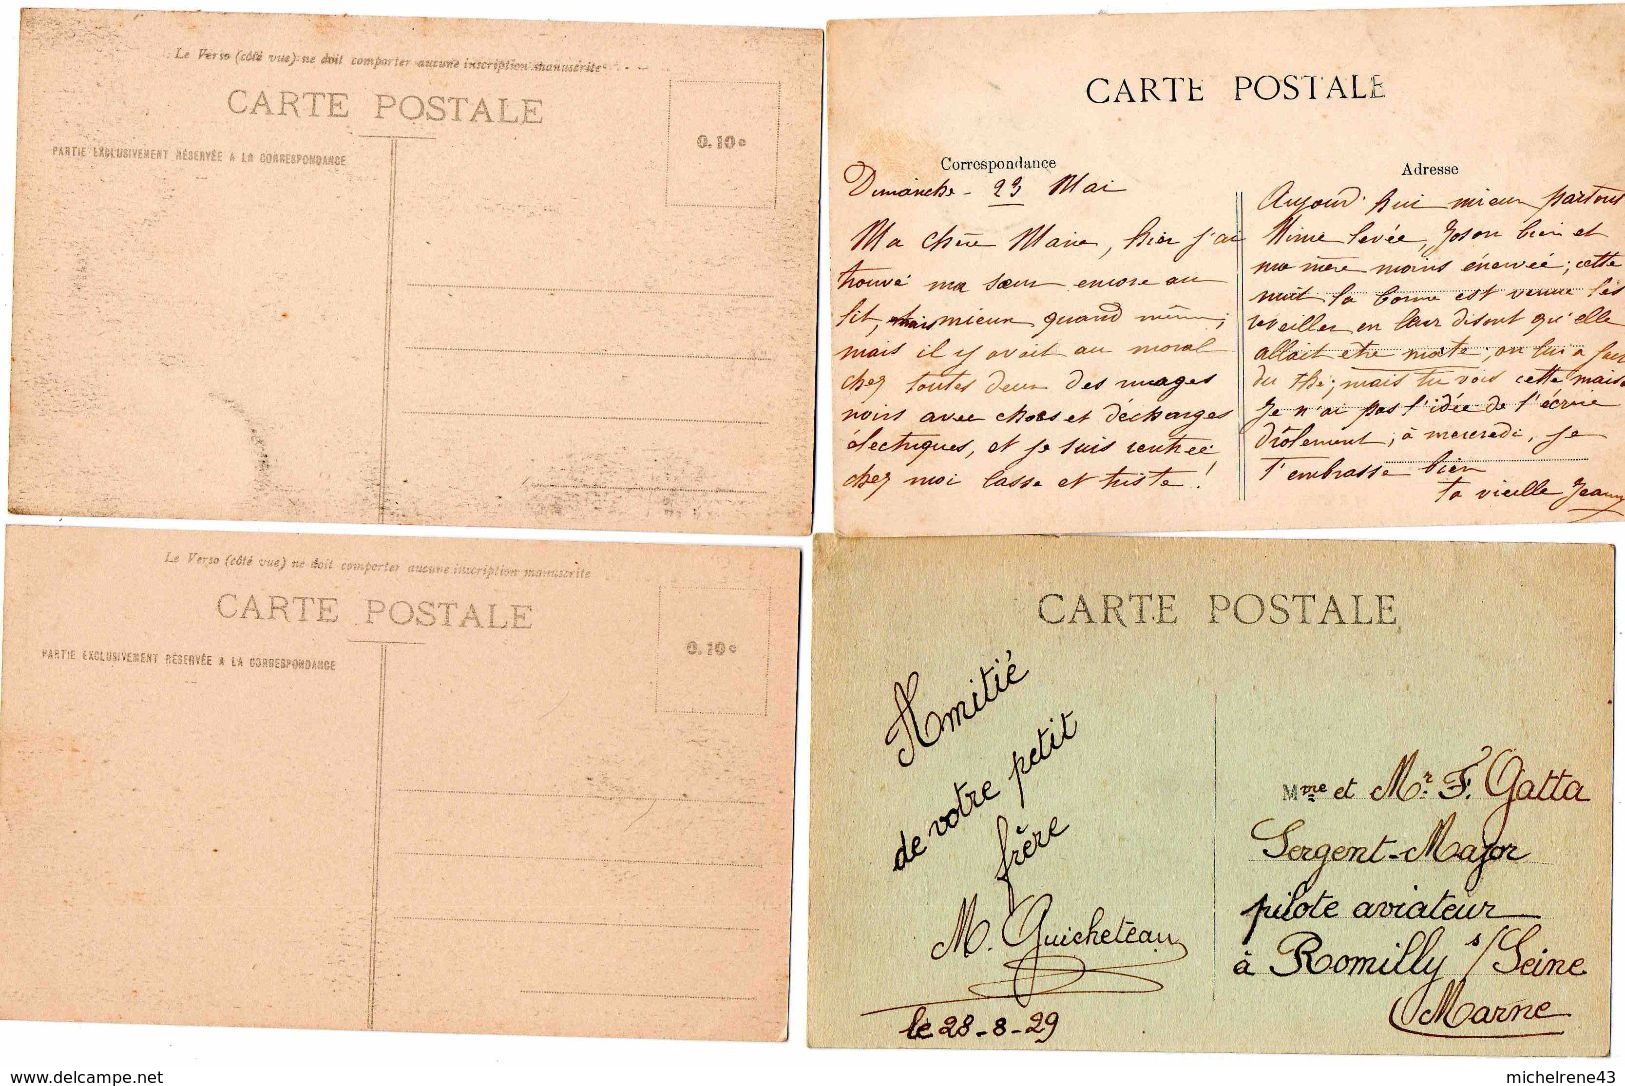 Le Verso (côté vue) ne doit comporter aucune inscription manuscrite
CARTE POSTALE
PARTIE EXCLUSIVEMENT RÉSERVÉE A LA CORRESPONDANCE
0.10c
CARTE POSTALE
Correspondance
Dimanche - 23 Mai
Ma chère Marie, hier j'ai
trouvé ma sœur encore au
lit, mais mieux quand même;
mais il y avait au moral
chez toutes deux des nuages
noirs avec chocs et décharges
électriques, et je suis rentrée
chez moi lasse et triste !
Adresse
Aujourd'hui mieux partout
Mimie levée, bien et
ma mère moins énervée; cette
nuit la bonne est venue les
réveiller en leur disant qu'elle
allait être morte; on lui a fait
du thé; mais tu vois cette maison
Je n'ai pas l'idée de t'écrire
drôlement; à mercredi, je
t'embrasse bien
ta vieille Jeanne
Le Verso (côté vue) ne doit comporter aucune inscription manuscrite
CARTE POSTALE
PARTIE EXCLUSIVEMENT RÉSERVÉE A LA CORRESPONDANCE
0.10c
CARTE POSTALE
Amitié
de votre petit
frère
M. Guicheteau
le 28-8-29
Mme et Mr. F. Gatta
Sergent-Major
pilote aviateur
à Romilly s/Seine
Marne
www.delcampe.net
michelrene43